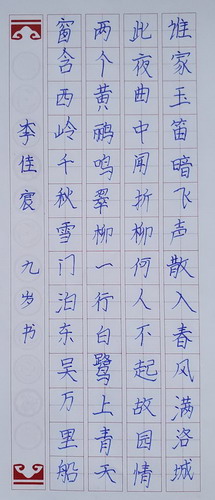 谁家玉笛暗飞声散入春风满洛城
此夜曲中闻折柳何人不起故园情
两个黄鹂鸣翠柳一行白鹭上青天
窗含西岭千秋雪门泊东吴万里船
李佳宸 九岁书